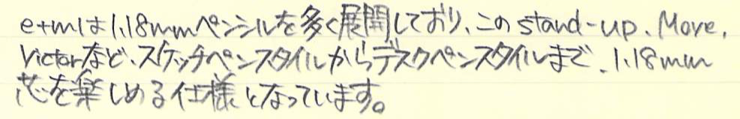 e+mは1.18mmペンシルを多く展開しており、このstand-up、Move、
Victorなど、スケッチペンスタイルからデスクペンスタイルまで、1.18mm
芯を楽しめる仕様となっています。